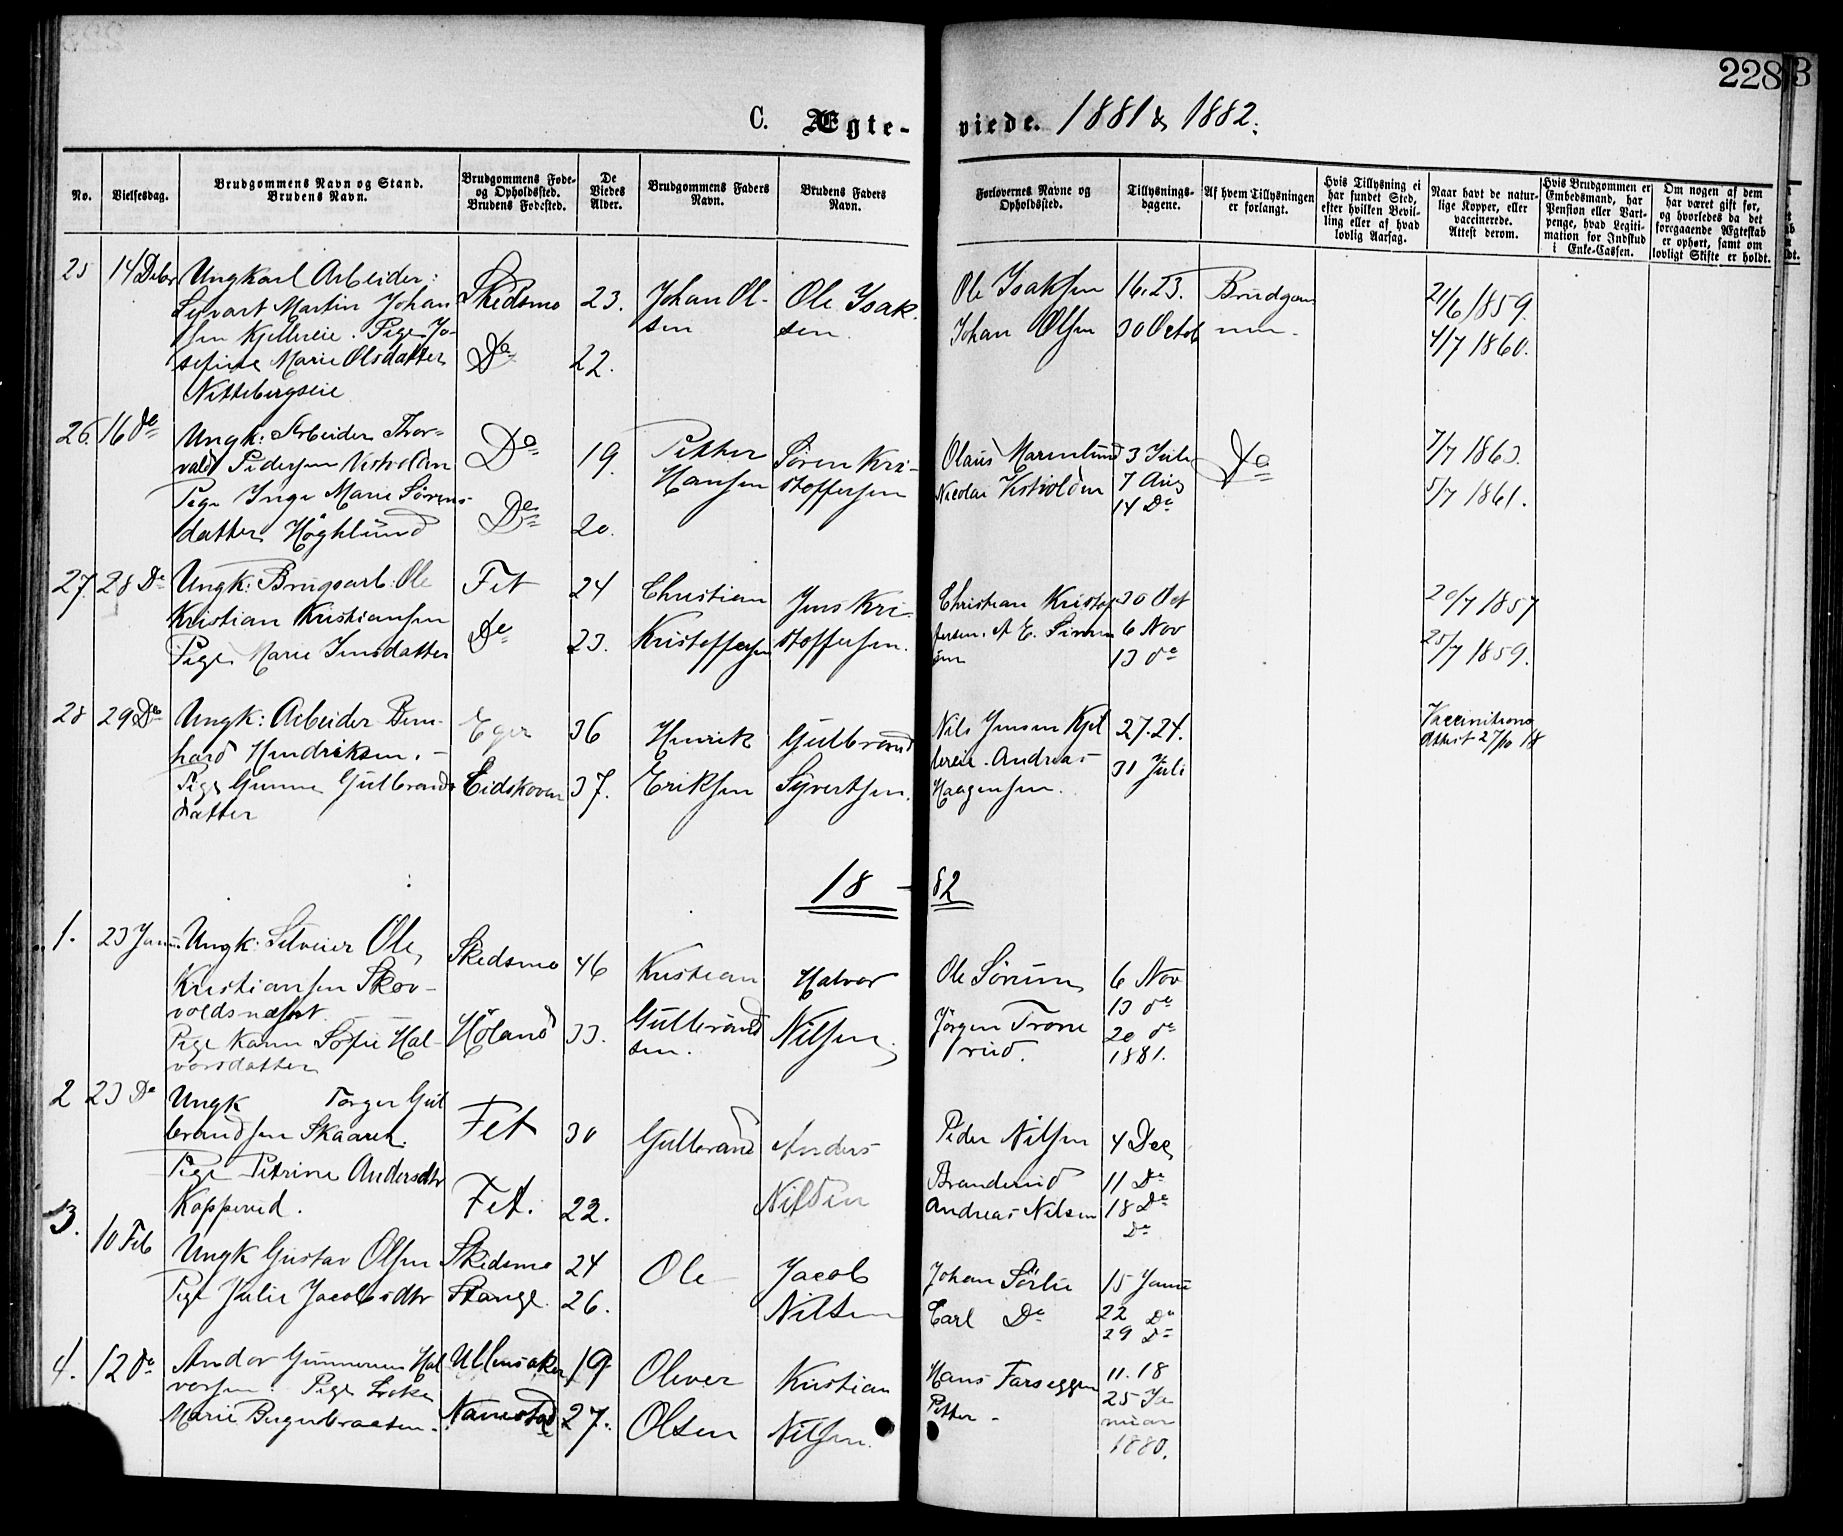 228
C. Ægte- viede. 1881 & 1882.
No.
Vielsesdag.
Brudgommens Navn og Stand.
Brudens Navn.
Brudgommens Føde-
og Opholdssted.
Brudens Fødested.
De
Viedes
Alder.
Brudgommens Faders
Navn.
Brudens Faders
Navn.
Forlovernes Navne og
Opholdssted.
Tillysnings-
dagene.
Af hvem Tillysningen
er forlangt.
Hvis Tillysning ei
har fundet Sted,
efter hvilken Bevil-
ling eller af hvad
lovlig Aarsag.
Naar havt de natur-
lige Kopper, eller
vaccinerede.
Attest derom.
Hvis Brudgommen er
Embedsmand, har
Pension eller Vart-
penge, hvad Legiti-
mation for Indskud
i Enke-Cassen.
Om nogen af dem
har været gift før,
og hvorledes da det
foregaaende Ægteskab
er ophørt, samt om
lovligt Skifte er holdt.
25 14 Debr Ungkarl Arbeider: Skedsmo 23. Johan Ol- Ole Isak- Ole Isaksen 16. 23. Brudgom 21/6 1859.
Syvart Martin Johan
sen Kjellereie. Pige Jo- sen sen. Johan Olsen 30 Octob men. 4/7 1860.
sefine Marie Olsdatter Do 22.
Nittebergseie
26. 16 do Ungk: Arbeider Thor- Do 19. Petter Søren Kri- Olaus Marenlund 3 Juli Do 7/7 1863.
vald Pedersen Vestvolden Hansen stoffersen Nicolai Vestvolden 7 Aug 5/7 1861.
Pige Inge Marie Sørens- Do 14 Do
datter Høghlund 20.
27. 28 Do Ungk: Brugsarb: Ole Fet 24 Christian Jens Kri- Christian Kristof 30 Oct 20/7 1857
Kristian Kristiansen Do Kristoffersen stoffersen. fersen. 6 Nov 25/7 1859.
Pige Marie Jensdatter 23. 13 do
28 29 Do Ungk: Arbeider Bern- Eger 36 Henrik Gulbrand Nils Jensen Kjel 27. 24. Vaccinations
hard Hendriksen. lereie. Andreas 31 Juli Attest 27/10 18
Pige Gunne Gulbrands Eidskoven 37. Eriksen Syvertsen. Haagensen.
datter
18 - 82
1. 23 Janu. Ungk: Selveier Ole Skedsmo 46 Kristian Halvor Ole Sørum 6 Nov
Kristiansen Skov- 13 do
voldsnæset. Gulbrand Nilsen. Jørgen Trone 20 do
Pige Karen Sofie Hal- Høland 33. sen. rud. 1881.
vorsdatter
2 23 Do Ungk Torger Gul Fet 30 Gulbrand Anders Peder Nilsen 4 Dec
brandsen Skaaret.
Pige Petrine Andersdtr Branderud 11 Do
Kopperud. Fet. 22. Nilsen Andreas Nilsen 18 Do
Do
3. 10 Feb Ungk Gustav Olsen Skedsmo 24 Ole Jacob Johan Sørlie 15 Janu
Pige Julie Jacobsdtr Stange 26. Nilsen Carl Do 22 Do
29 Do
4. 12 Do Andor Gunnerius Hal Ullensaker 19 Oliver Kristian Hans Farseggen 11. 18
vorsen. Pige 25 Ja
Marie Nannestad 27. Olsen Nilsen. Petter - nuar
1880.